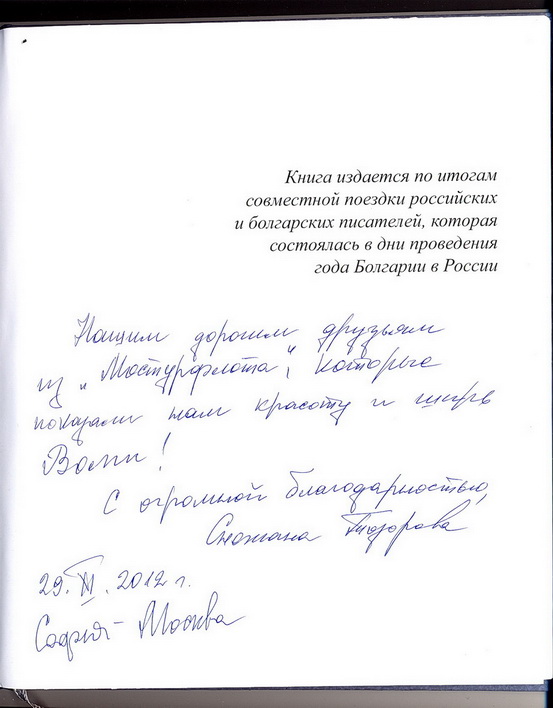 Книга издается по итогам
совместной поездки российских
и болгарских писателей, которая
состоялась в дни проведения
года Болгарии в России
Нашим дорогим друзьям
из „Мостурфлота“, которые
показали нам красоту и ширь
Волги!
С огромной благодарностью,
Снежана Тодорова
29.XI.2012 г.
София - Москва